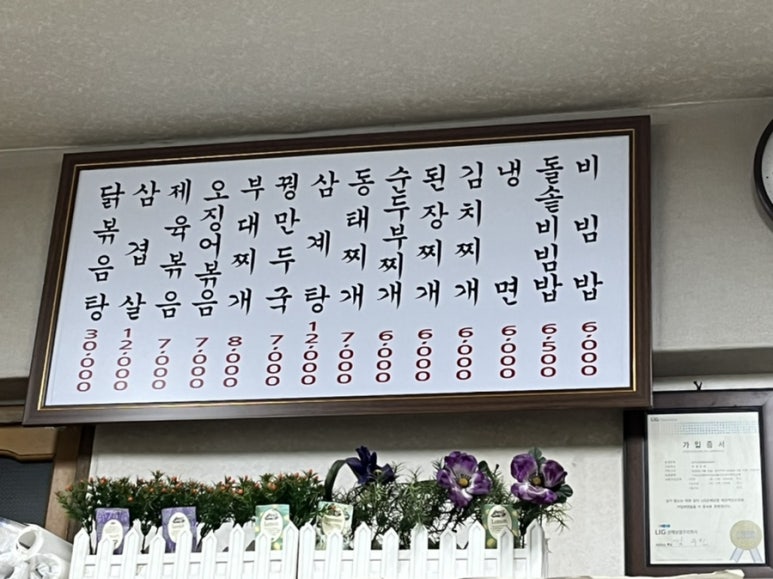 비빔밥 6,000
돌솥비빔밥 6,500
냉면 6,000
김치찌개 6,000
된장찌개 6,000
순두부찌개 6,000
동태찌개 7,000
삼계탕 12,000
꿩만두국 7,000
부대찌개 8,000
오징어볶음 7,000
제육볶음 7,000
삼겹살 12,000
닭볶음탕 30,000
LIG
가입증서
LIG 손해보험주식회사